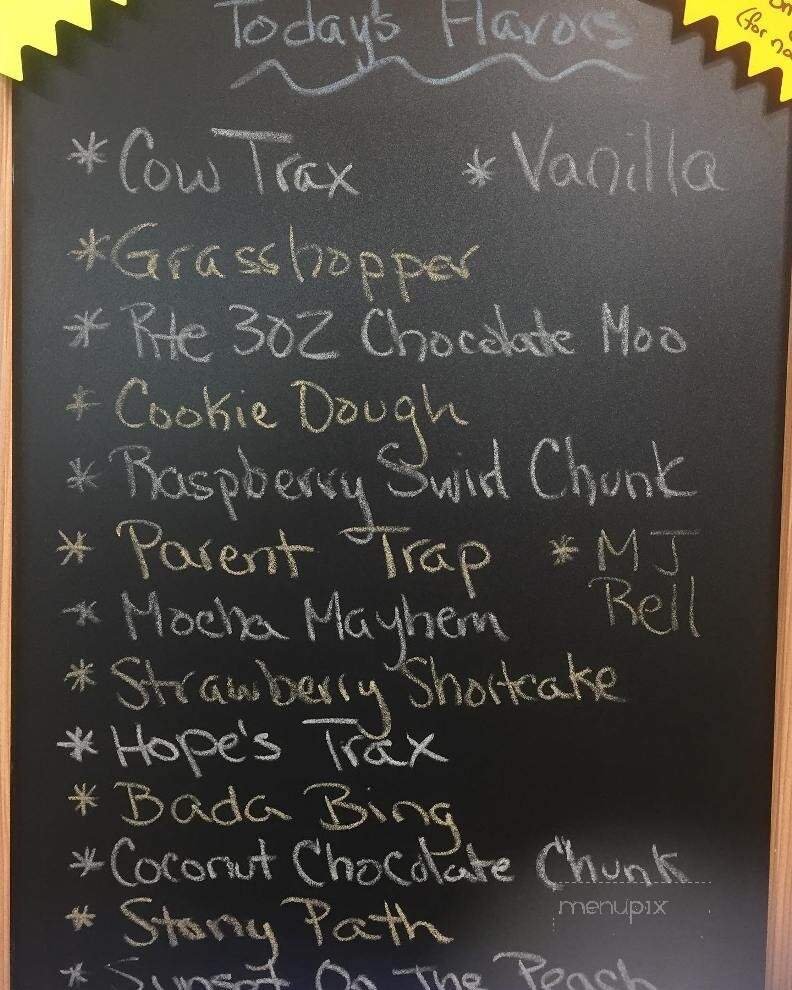 Today's Flavors
(for no
* Cow Trax * Vanilla
* Grasshopper
* Rte 302 Chocolate Moo
* Cookie Dough
* Raspberry Swirl Chunk
* Parent Trap * MJ
Rell
* Mocha Mayhem
* Strawberry Shortcake
* Hope's Trax
* Bada Bing
* Coconut Chocolate Chunk
menupix
* Stony Path
* Sunset On The Peach